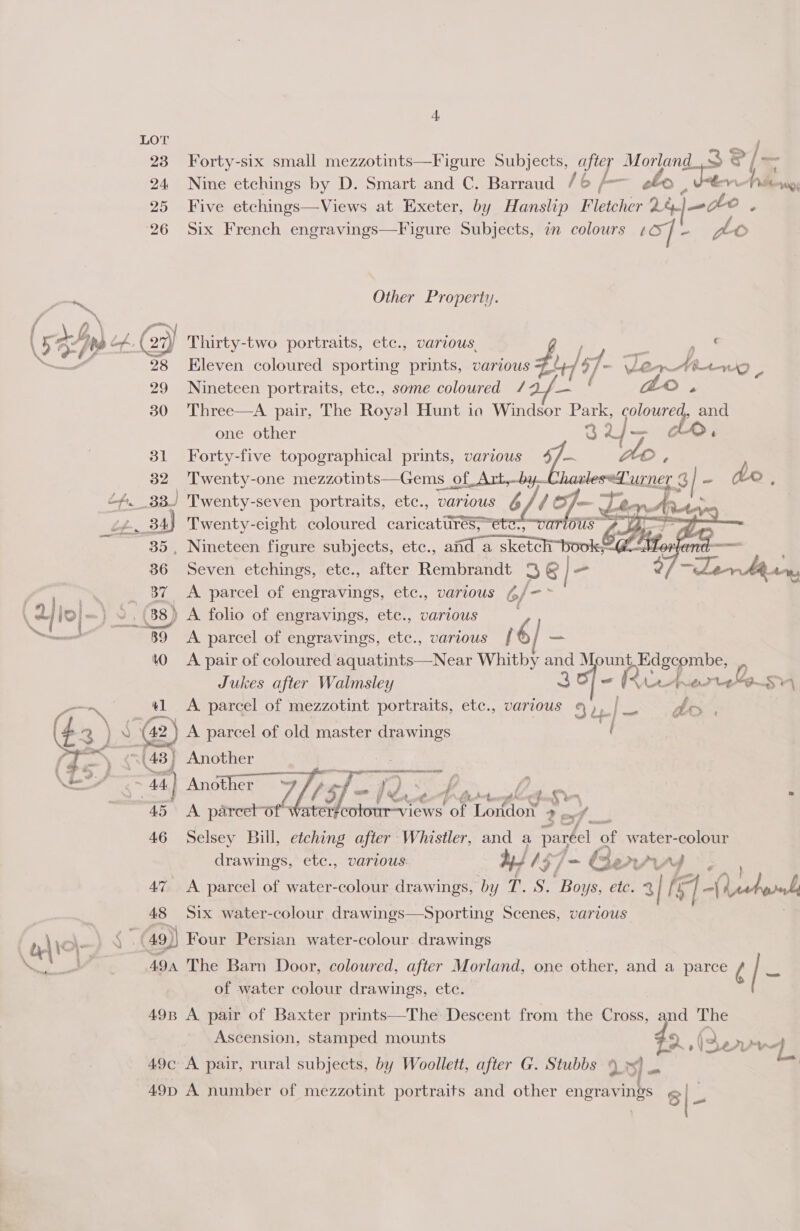 4
LOT
23 Forty-six small mezzotints—Figure Subjects, after Morland 38/-
24 Nine etchings by D. Smart and C. Barraud 16/- do
25 Five etchings—Views at Exeter, by Hanslip Fletcher 24/- do
26 Six French engravings—Figure Subjects, in colours 15/- do
Other Property.
27 Thirty-two portraits, etc., various
28 Eleven coloured sporting prints, various
29 Nineteen portraits, etc., some coloured 12/- do.
30 Three—A pair, The Royal Hunt in Windsor Park, coloured, and
one other 32/- do.
31 Forty-five topographical prints, various do,
32 Twenty-one mezzotints—Gems of Art, by Charles Turner 3/- do.
33 Twenty-seven portraits, etc., various
34 Twenty-eight coloured caricatures, etc., various
35 Nineteen figure subjects, etc., and a sketch book, G. Morland
36 Seven etchings, etc., after Rembrandt 38/-
37 A parcel of engravings, etc., various 6/-
2/10/- 38 A folio of engravings, etc., various
39 A parcel of engravings, etc., various 16/-
40 A pair of coloured aquatints—Near Whitby and Mount Edgcombe,
Jukes after Walmsley 30/-
41 A parcel of mezzotint portraits, etc., various do.
42 A parcel of old master drawings
43 Another
44 Another
45 A parcel of water-colour views of London
46 Selsey Bill, etching after Whistler, and a parcel of water-colour
drawings, etc., various
47 A parcel of water-colour drawings, by T. S. Boys, etc.
48 Six water-colour drawings—Sporting Scenes, various
49 Four Persian water-colour drawings
49A The Barn Door, coloured, after Morland, one other, and a parce
of water colour drawings, etc.
49B A pair of Baxter prints—The Descent from the Cross, and The
Ascension, stamped mounts
49C A pair, rural subjects, by Woollett, after G. Stubbs
49D A number of mezzotint portraits and other engravings 8/-